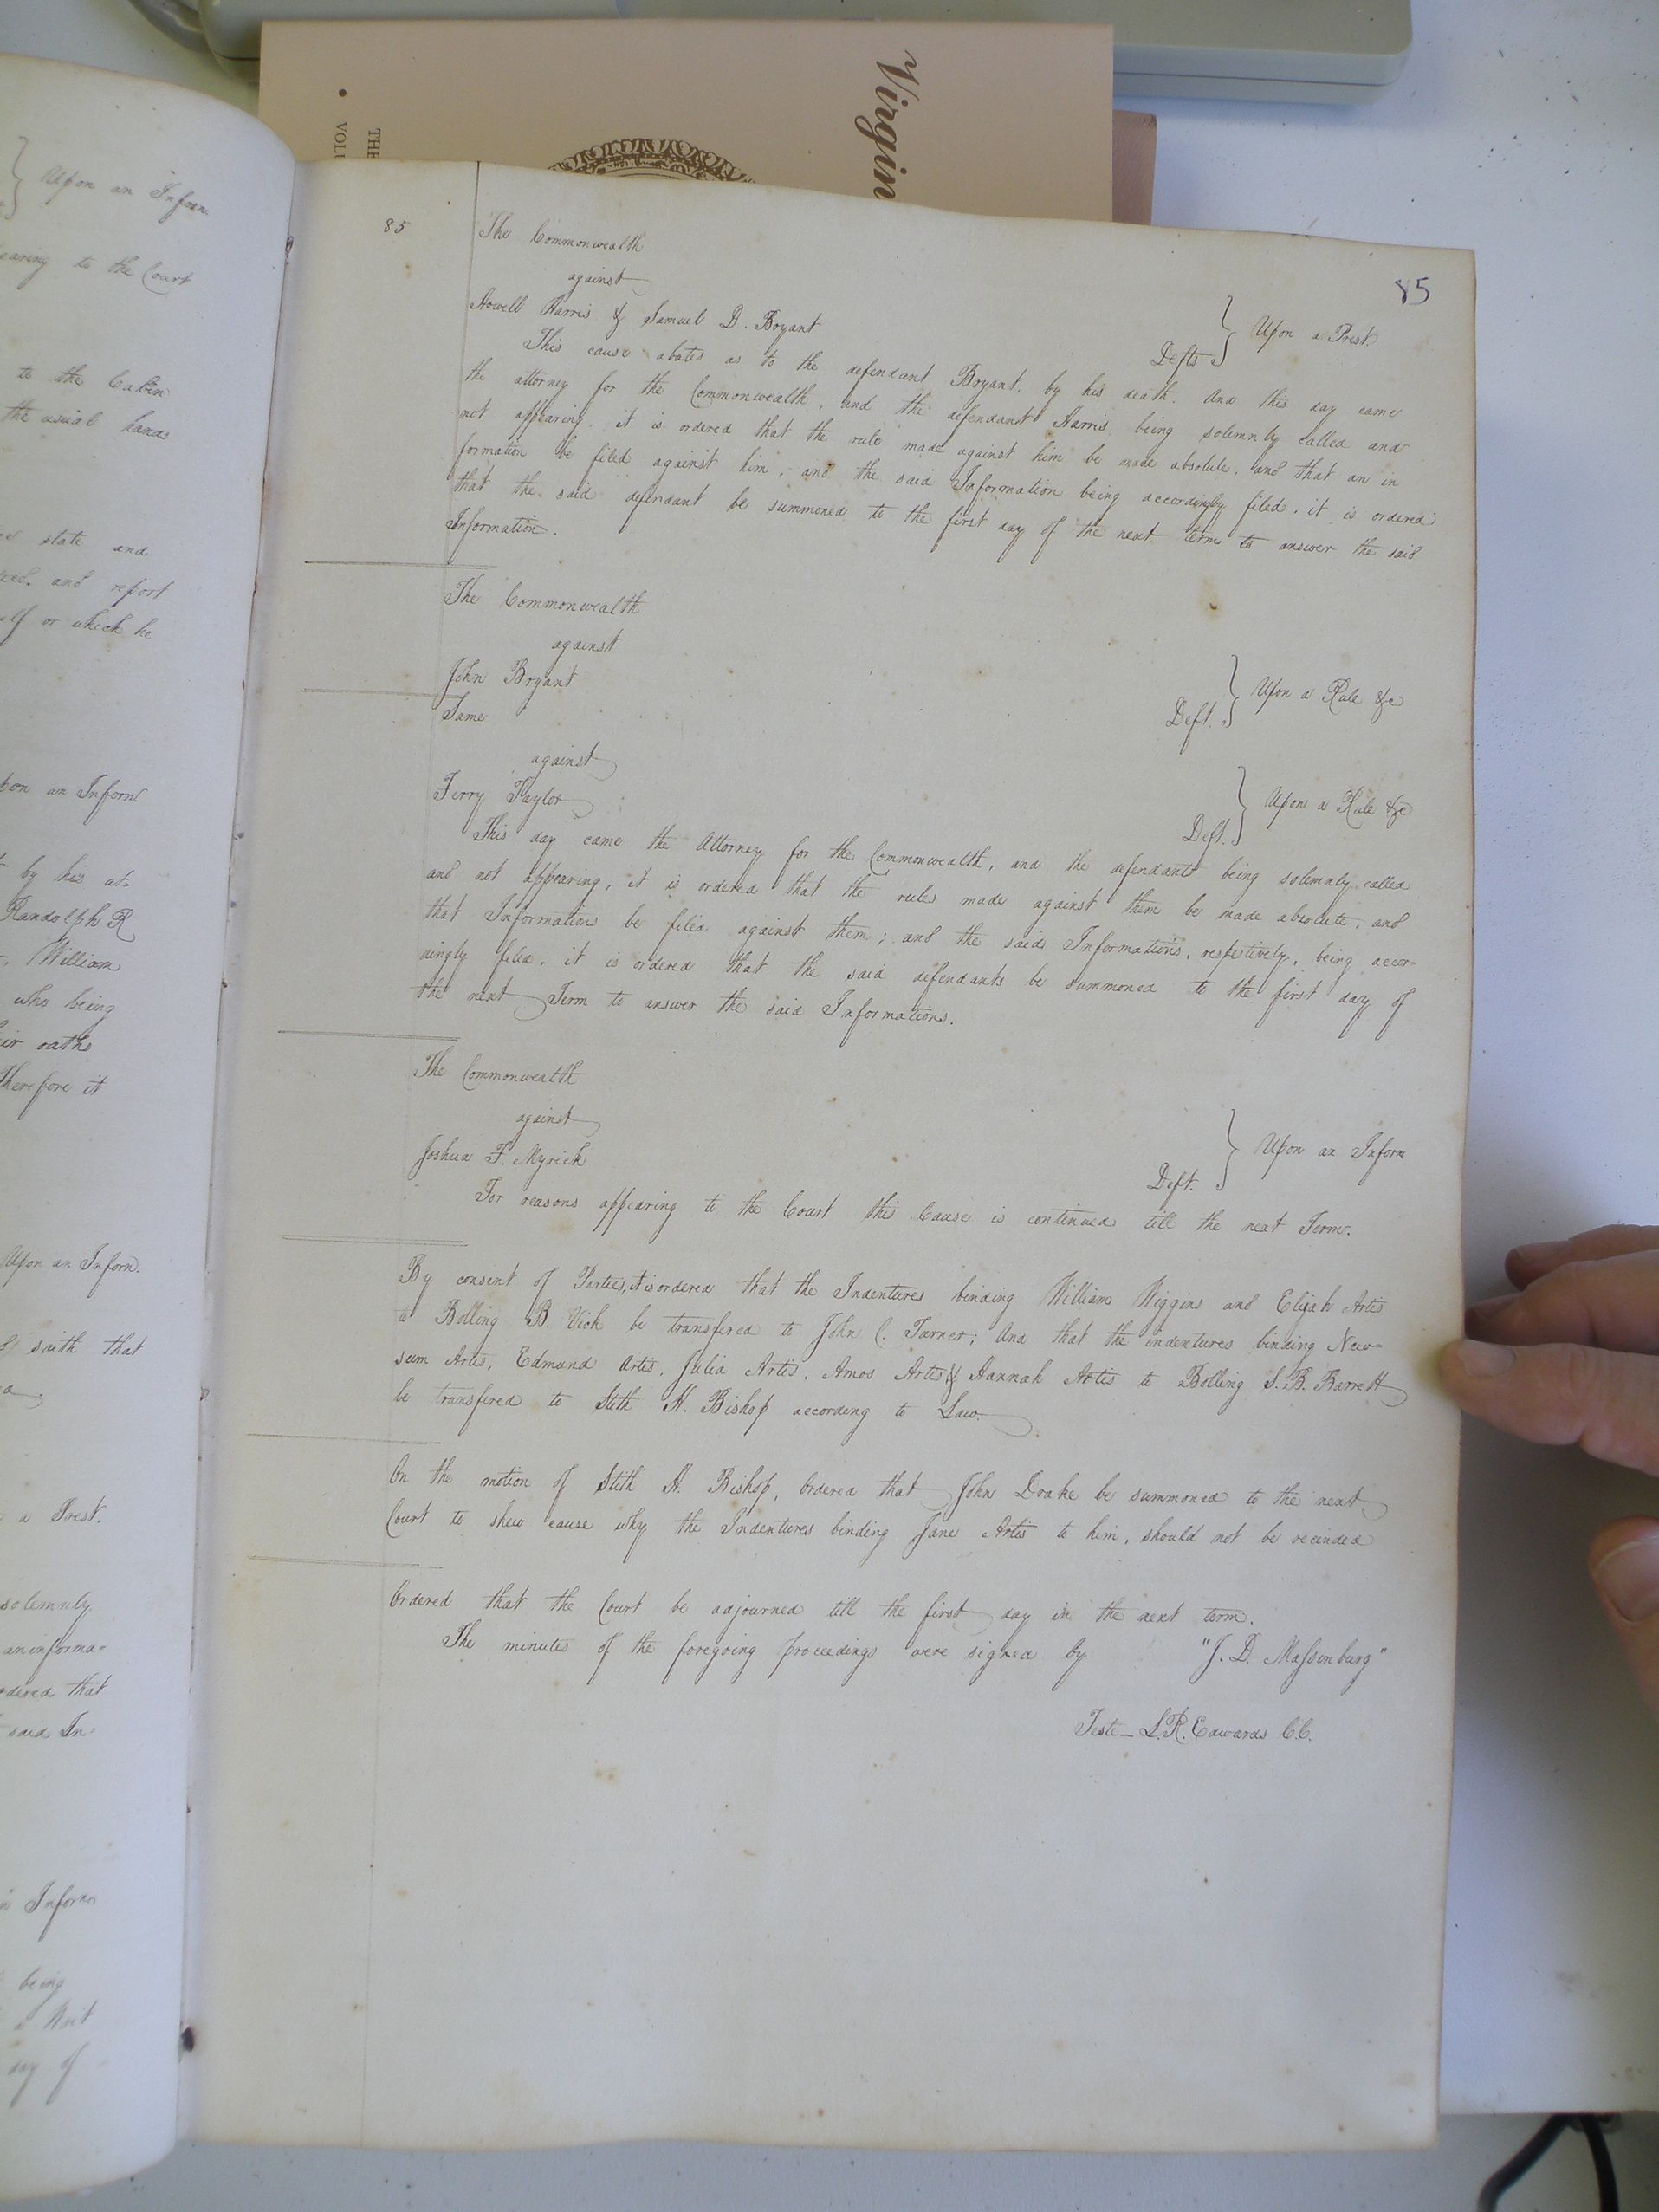 Virgin
THE
VOL
Upon an Inform
earing to the Court
to the Caken
the usual hands
state and
and report
or which he
upon an Inform
by his at-
Randolph R
William
who being
their oaths
Therefore it
Upon an Inform.
saith that
a Prest.
solemnly
an informa-
ordered that
said In-
Inform
being
a Writ
day of
85
85
The Commonwealth
against
Howell Harris & Samuel D. Bryant Defts } Upon a Prest
This cause abates as to the defendant Bryant, by his death. And this day came
the attorney for the Commonwealth, and the defendant Harris being solemnly called and
not appearing, it is ordered that the rule made against him be made absolute, and that an in
formation be filed against him, and the said Information being accordingly filed, it is ordered
that the said defendant be summoned to the first day of the next term to answer the said
Information.
The Commonwealth
against
John Bryant Deft. } Upon a Rule &c
Same
against
Terry Taylor Deft. } Upon a Rule &c
This day came the Attorney for the Commonwealth, and the defendants being solemnly called
and not appearing, it is ordered that the rules made against them be made absolute, and
that Informations be filed against them; and the said Informations, respectively, being accor-
dingly filed, it is ordered that the said defendants be summoned to the first day of
the next Term to answer the said Informations.
The Commonwealth
against
Joshua F. Myrick Deft. } Upon an Inform
For reasons appearing to the Court this Cause is continued till the next Term.
By consent of Parties, it is ordered that the Indentures binding William Wiggins and Elijah Artis
to Bolling B. Vick be transfered to John C. Turner; And that the indentures binding New-
sum Artis, Edmund Artis, Julia Artis, Amos Artis & Hannah Artis to Bolling S. B. Barrett
be transfered to Steth H. Bishop according to Law.
On the motion of Steth H. Bishop, Ordered that John Drake be summoned to the next
Court to shew cause why the Indentures binding Jane Artis to him, should not be recinded
Ordered that the Court be adjourned till the first day in the next term.
The minutes of the foregoing proceedings were signed by "J. D. Massenburg"
Teste_ L. R. Edwards C.C.